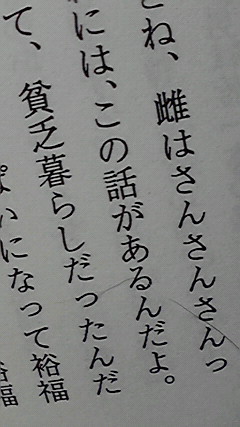 ね、雌はさんさんさんっ
には、この話があるんだよ。
て、貧乏暮らしだったんだ
いになって裕福